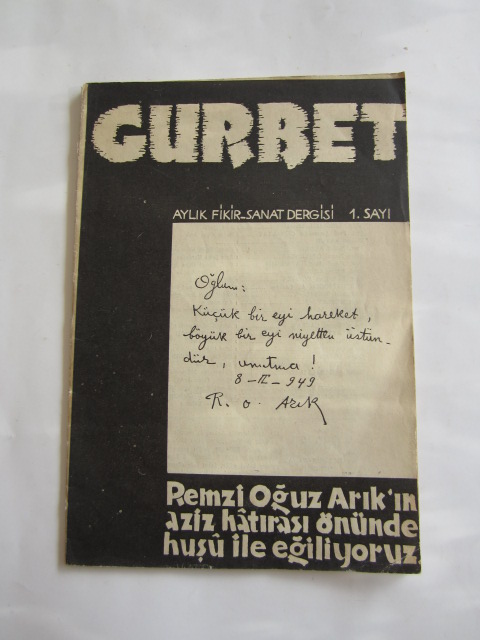 GURBET
AYLIK FİKİR-SANAT DERGİSİ 1. SAYI
Oğlum:
Küçük bir eyi hareket,
böyük bir eyi niyetten üstün-
dür, unutma!
8-II-949
R. O. Arık
Remzi Oğuz Arık'ın
aziz hâtırası önünde
huşû ile eğiliyoruz